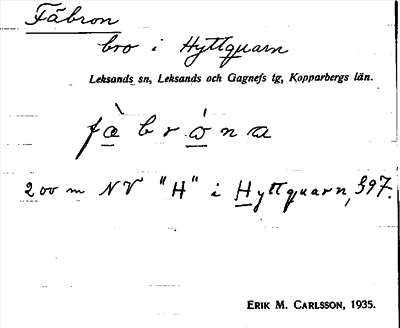 Fäbron
bro i Hyttquarn
Leksands sn, Leksands och Gagnefs tg, Kopparbergs län.
fàbrȯna
200 m NV "H" i Hyttquarn, 397.
ERIK M. CARLSSON, 1935.